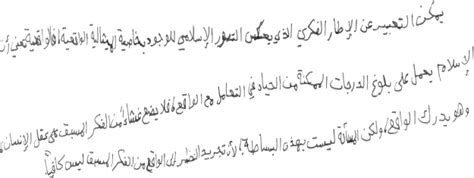 يمكن التعبير عن الإطار الفكري الذي يعكس التصور الإسلامي للوجود بخاصية المثالية الواقعية، فالواقعية تعني أن
الإسلام يعمل على بلوغ الدرجات الممكنة من الحياد في التعامل مع الواقع، فلا يضع غشاءً من الفكر المسبق على عقل الإنسان،
وهو يدرك الواقع، ولكن المسألة ليست بهذه البساطة؛ لأن تجريد النظر إلى الواقع من الفكر المسبق ليس كافياً